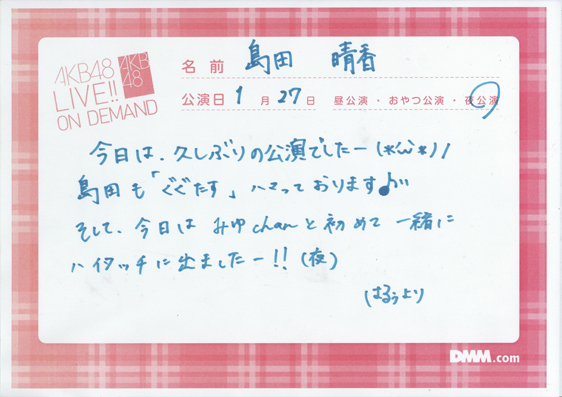 AKB48
LIVE!!
ON DEMAND
AKB
48
名前 島田 晴香
公演日 1月27日 昼公演・おやつ公演・夜公演
今日は、久しぶりの公演でしたー(*´ω`*)/
島田も「ぐぐたす」ハマっております♪
そして、今日は みゆchanと初めて 一緒に
ハイタッチに出ましたー!!(夜)
はるぅより
DMM.com